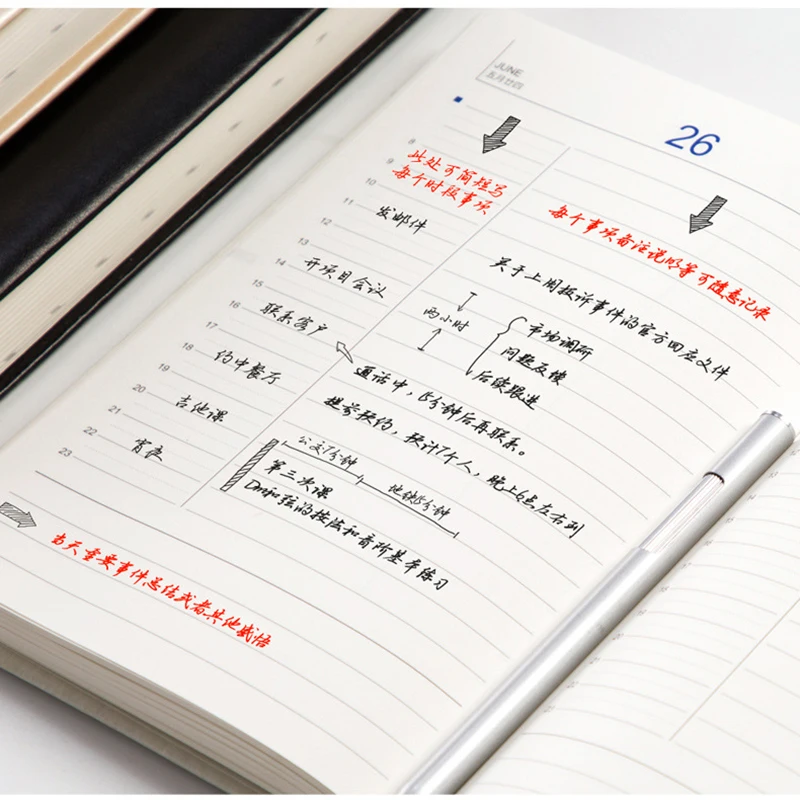 JUNE
五月廿四
26
8
9
10
11
12
13
14
15
16
17
18
19
20
21
22
23
此处可简短写
每个时段事项
发邮件
开项目会议
联系客户
约中餐厅
吉他课
宵夜
每个事项备注说明等可随意记录
关于上周投诉事件的官方回应文件
两小时
市场调研
问题反馈
后续跟进
通话中，15分钟后再联系。
提前预约，预计7个人，晚上6点左右到
公交7分钟
地铁15分钟
第三次课
Dm和弦的按法和音阶基本练习
当天重要事件总结或者其他感悟